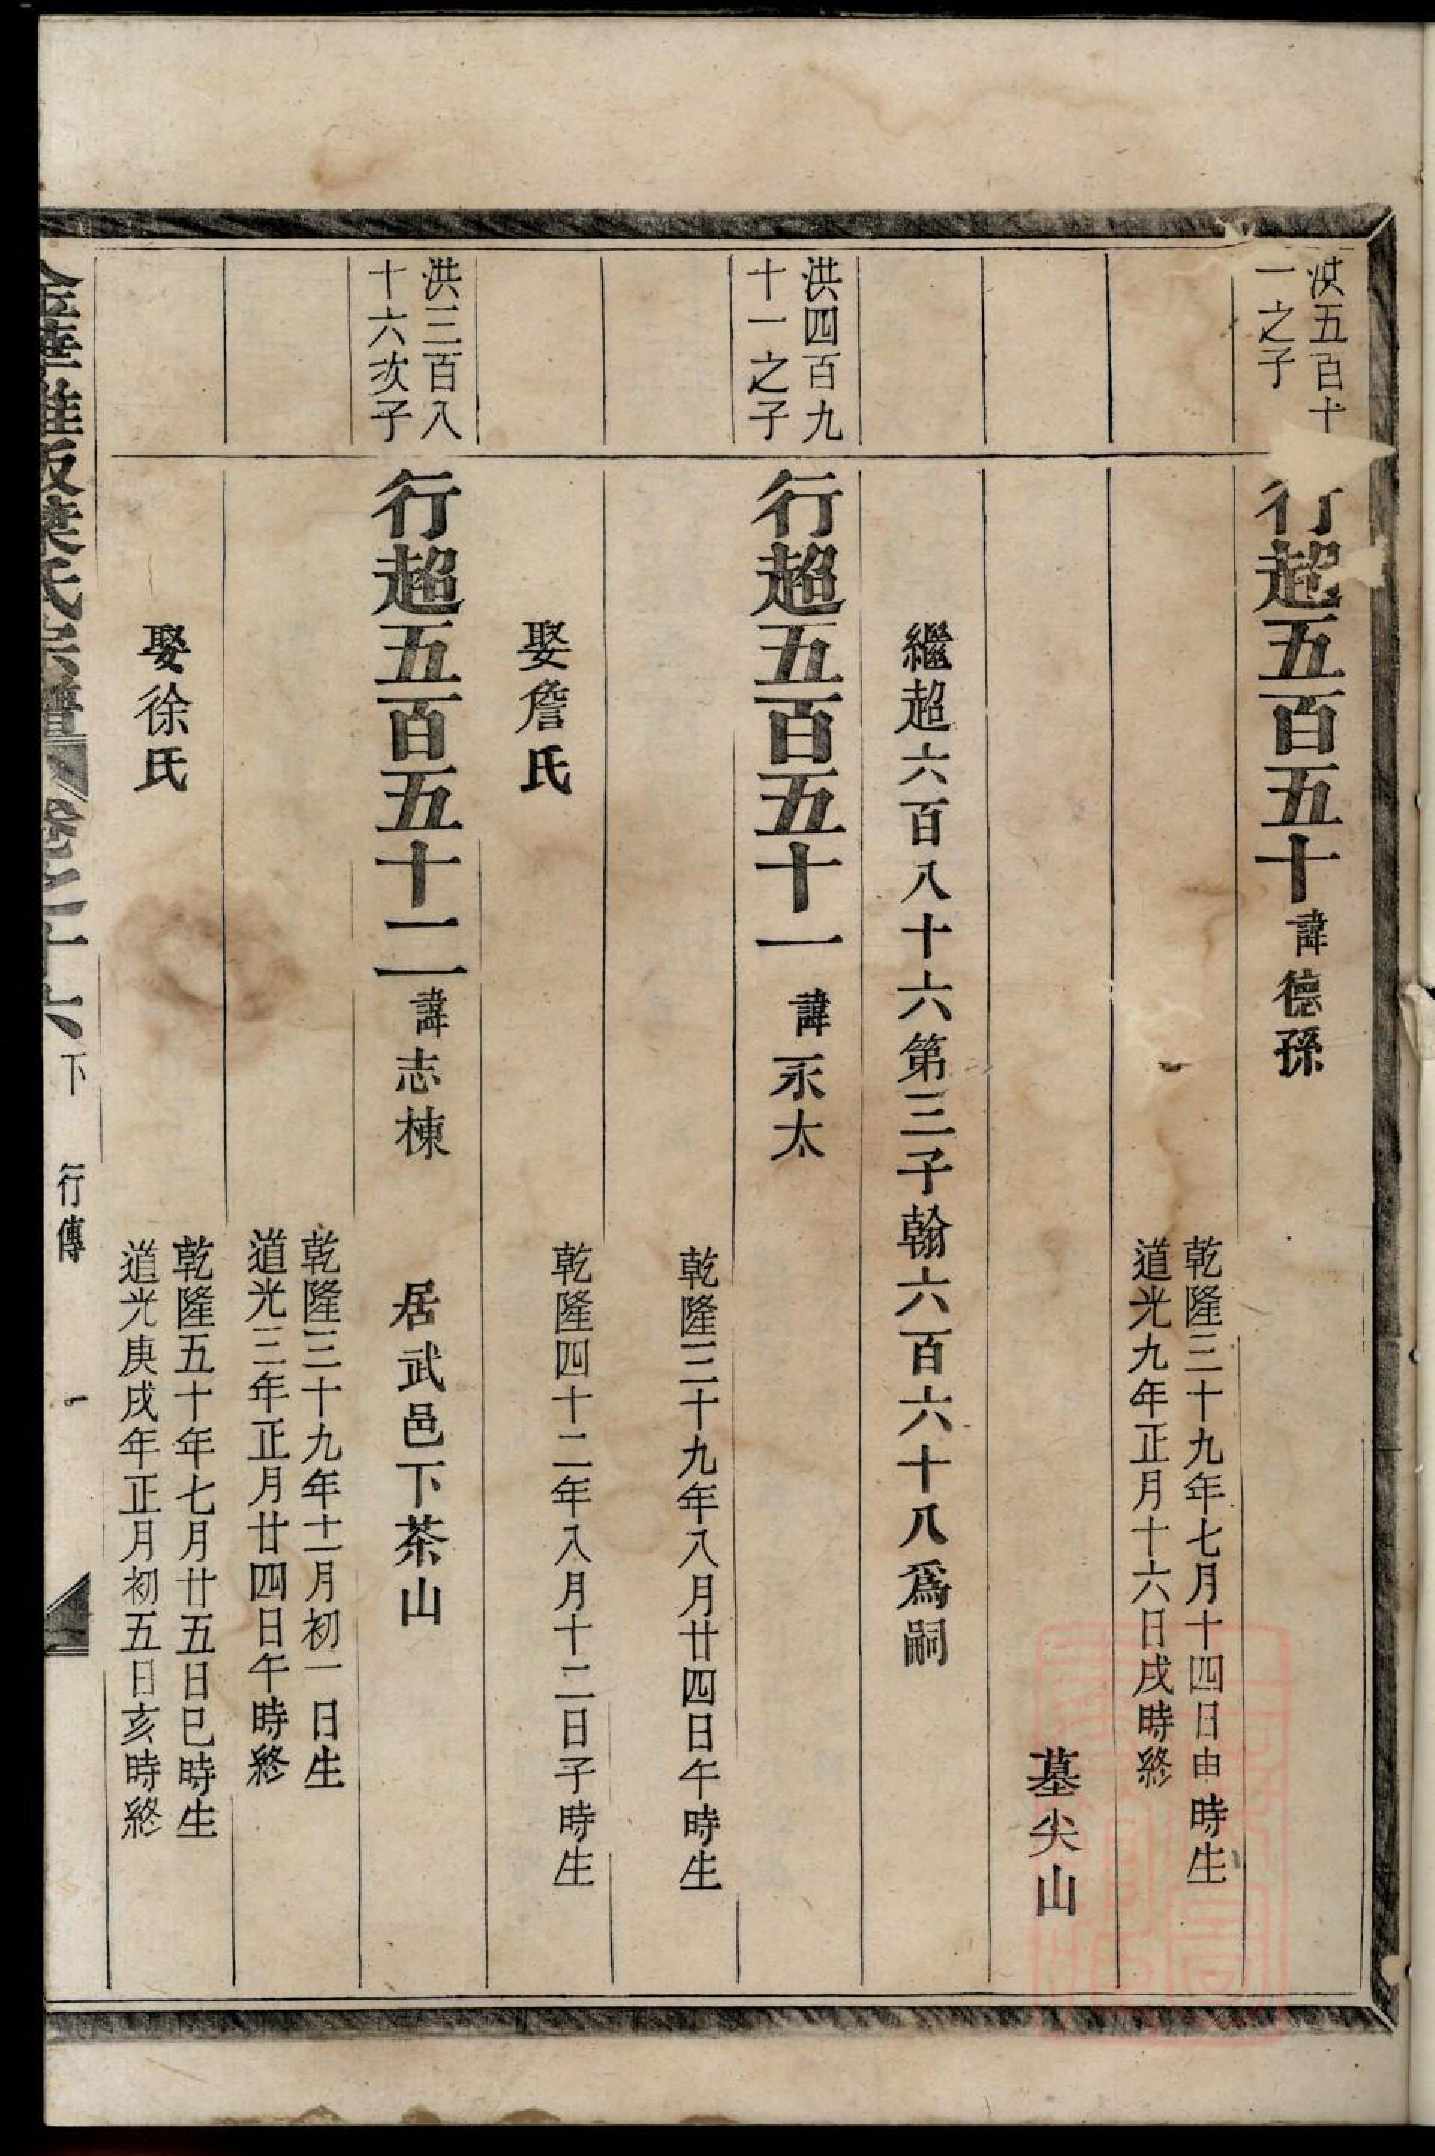 洪五百十
一之子
行超五百五十 諱德孫
乾隆三十九年七月十四日申時生
道光九年正月十六日戌時終
墓尖山
繼超六百八十六第三子翰六百六十八爲嗣
洪四百九
十一之子
行超五百五十一 諱永太
乾隆三十九年八月廿四日午時生
娶詹氏
乾隆四十二年八月十二日子時生
洪三百八
十六次子
行超五百五十二 諱志棟 居武邑下茶山
乾隆三十九年十一月初一日生
道光三年正月廿四日午時終
娶徐氏
乾隆五十年七月廿五日巳時生
道光庚戌年正月初五日亥時終
金華 氏宗譜 卷之十六下 行傳 一